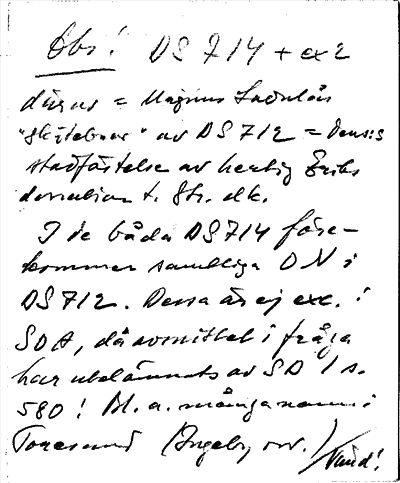 Obs! DS 714 + ex 2
därav = Magnus Ladulås
"skötebrev" av DS 712 = dennes
stadfästelse av hertig Eriks
donation t. Str. dk.
I de båda DS 714 före-
kommer samtliga ON i
DS 712. Dessa är ej exc. i
SOA, då avsnittet i fråga
har utelämnats av SD 1 s.
580! Bl. a. många namn i
Toresund (Ingeby, ovv.)